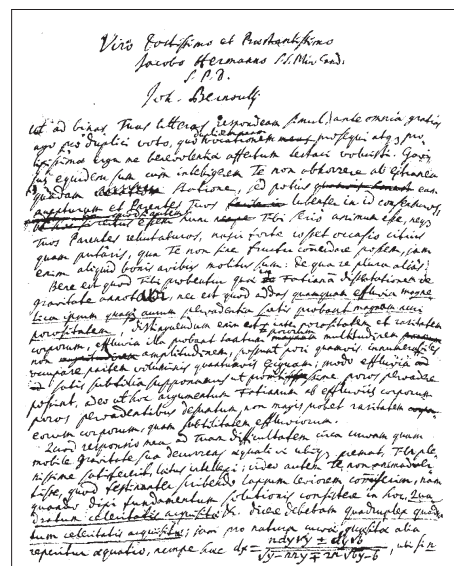 Viro Doctissimo et Praestantissimo
Jacobo Hermanno S.S. Min. Cand.
S. P. D.
Joh. Bernoulli
Ut ad binas Tuas litteras respondeam simul, ante omnia gratias
ago pro duplici voto, quo prosequi atque
erga me benevolentiae affectum testari voluisti.
sus equidem sum cum intelligerem Te non abhorrere ab
quadam Statione, sed potius eam
et Parentes Tuos libenter in id consensuros,
Tibi animum esse, neque
Tuos Parentes reluctaturos, nasci forte posset occasio citius
quam putaris, qua Te non sine fructu commendare possem, jam
enim aliquid bonis avibus molitus sum: de qua re plura alias.
Bene est quod Tibi probentur quae in Fatianam dissertationem de
gravitate annotavi, nec est quod addas quamquam effluvia magne-
tica ipsum quasi aurum pervadentia satis probant magnam auri
porositatem; distinguendum enim est inter porositatem et raritatem
corporum; effluvia illa probant tantum pororum multitudinem
non amplitudinem, possunt pori quamvis innumerabiles
occupare partem voluminis quantumvis exiguam; modo effluvia
satis subtilia supponamus ut poros pervadere
possint, adeo ut hoc argumentum Fatianum ab effluviis corporum
poros pervadentibus desumtum, non magis probet raritatem
eorum corporum, quam subtilitatem effluviorum.
Quod responsio mea ad Tuam difficultatem circa curvam quam
mobile gravitate sua decurrens aequali vi ubique premat, Tibi ple-
nissime satisfecerit, laetus intellexi; video autem te non animadver-
tisse, quod festinanter scribendo lapsum leviorem commiserim, nam
quando dixi fundamentum solutionis consistere in hoc, Qua-
dratum celeritatis acquisitae &c. dicere debebam quadruplex quadra-
tum celeritatis acquisitae; jam pro natura curvae alia
reperitur aequatio, nempe haec dx = ndy√y ± dy√b / √y–nny∓2n√by–b, ubi si n